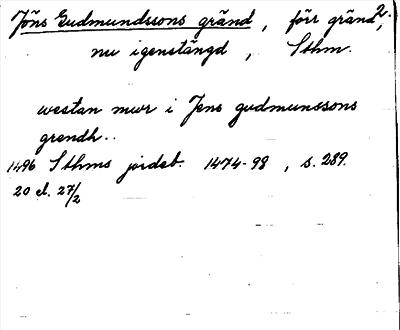 2.
Jöns Gudmundssons gränd, förr gränd,
nu igenstängd, Sthm.
westan mwr i Jens gudmunssons
grendh..
1496 Sthms jordeb. 1474-98, s. 289.
20 el. 27/2